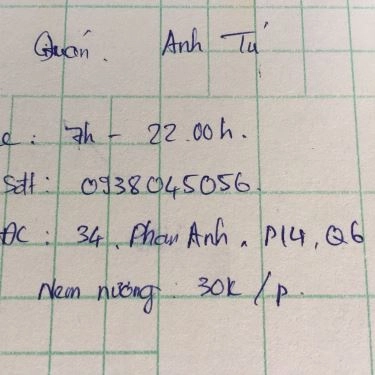 Quán. Anh Tú
c : 7h - 22.00h.
Sđt : 0938045056.
ĐC : 34, Phan Anh, P14, Q6
Nem nướng : 30k /p.